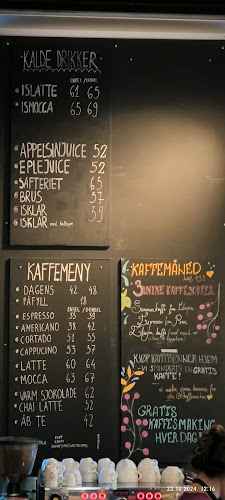 KALDE DRIKKER
ENKEL / DOBBEL
ISLATTE 61 65
ISMOCCA 65 69
APPELSINJUICE 52
EPLEJUICE 52
SAFTERIET 65
BRUS 37
ISKLAR 39
ISKLAR
KAFFEMENY
DAGENS 42 48
PÅFYLL 18
ENKEL / DOBBEL
ESPRESSO 35 39
AMERICANO 38 42
CORTADO 51 55
CAPPUCINO 53 57
LATTE 60 64
MOCCA 63 67
VARM SJOKOLADE 62
CHAI LATTE 52
ÅB TE 42
KAFFEMÅNED
3
KAFFESORTER
KJØP KAFFEBØNNER HJEM
- VI SPANDERER EN GRATIS
KAFFE!
GRATIS
KAFFESMAKING
HVERDAG
23.10.2024 12:16